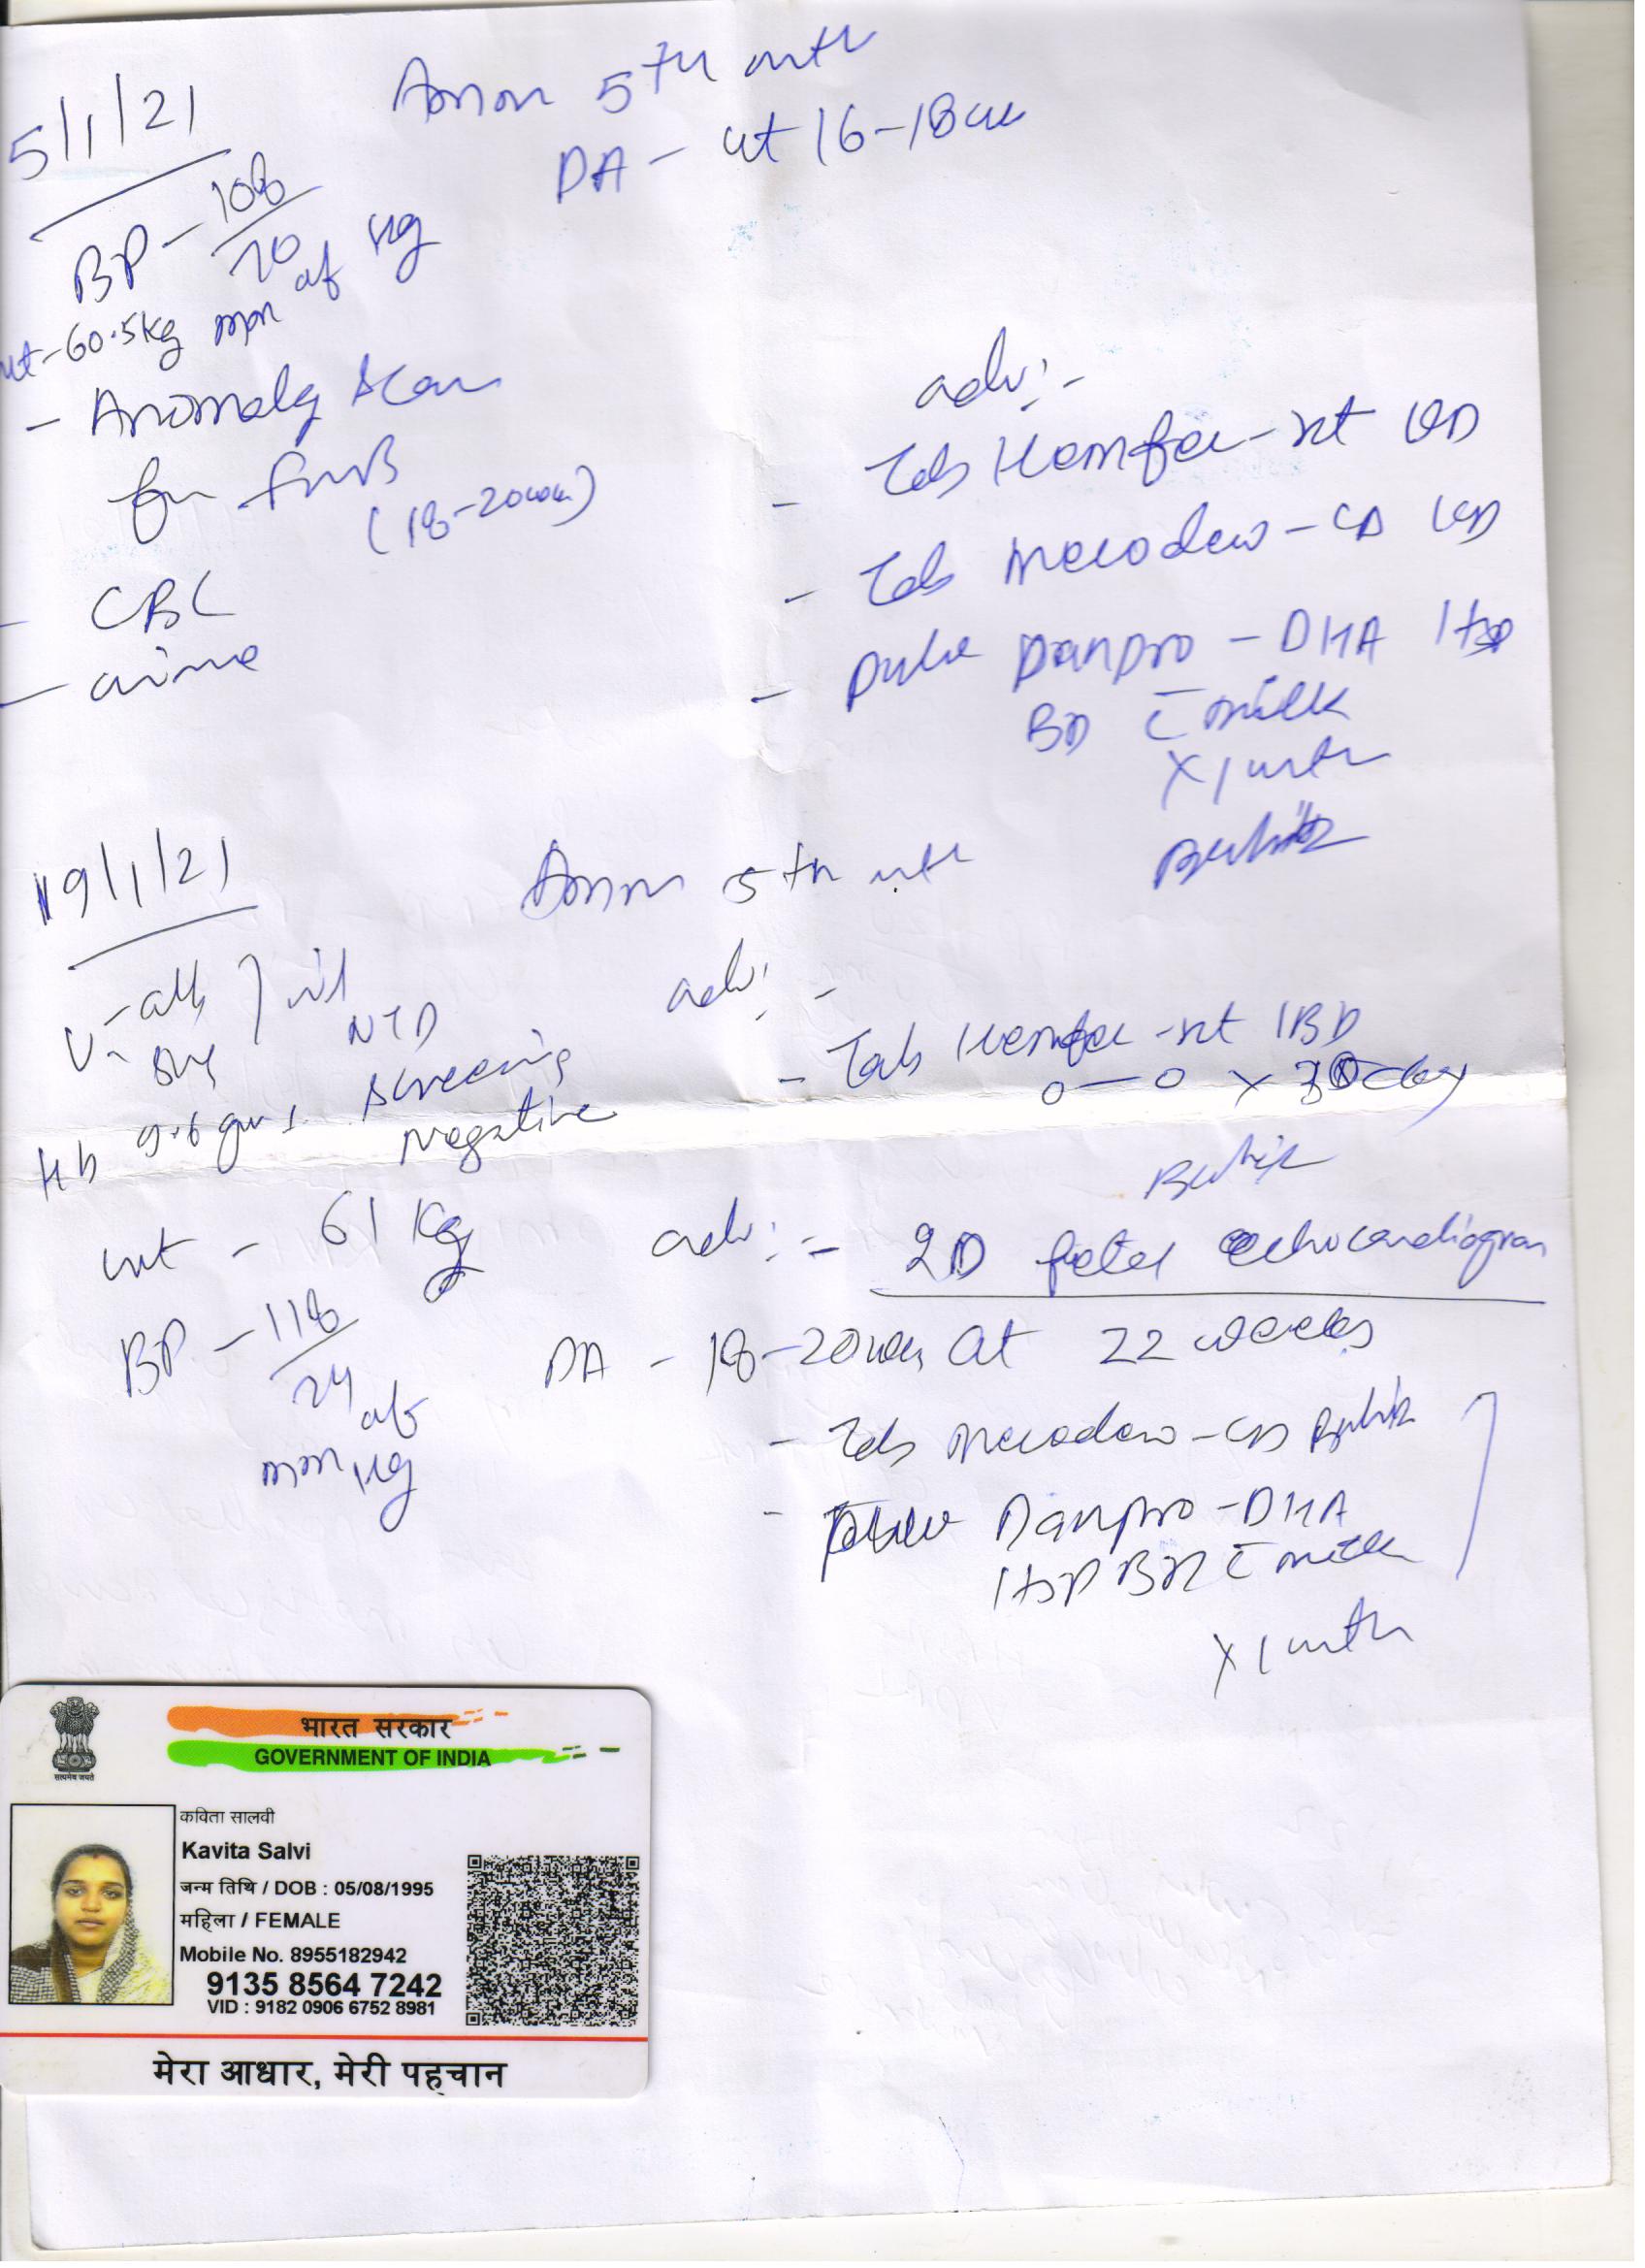 5/1/21
Amon 5th mth
PA - ut 16-18 wk
BP - 108/70 mm of Hg
wt - 60.5kg
- Anomaly Scan
for
(18-20wk)
- CBC
- urine
adv:-
- Tab Hemfer-xt OD
- Tab Mecodew-CD OD
- pulv Danpro - DHA 1tsp
BD c̄ milk
x 1 mth
19/1/21
Amon 5th mth
U - alb } nil
sug
NTD
screening
Negative
Hb 9.6 gm
adv:-
- Tab Hemfer-xt 1BD
o—o x 30 day
wt - 61 Kg
BP - 118/74 mm of Hg
adv:- 2D fetal echocardiogram
at 22 weeks
PA - 18-20 wk
- Tab Mecodew-CD
- Danpro-DHA
1tsp BD c̄ milk
x 1 mth
भारत सरकार
GOVERNMENT OF INDIA
सत्यमेव जयते
कविता सालवी
Kavita Salvi
जन्म तिथि / DOB : 05/08/1995
महिला / FEMALE
Mobile No. 8955182942
9135 8564 7242
VID : 9182 0906 6752 8981
मेरा आधार, मेरी पहचान